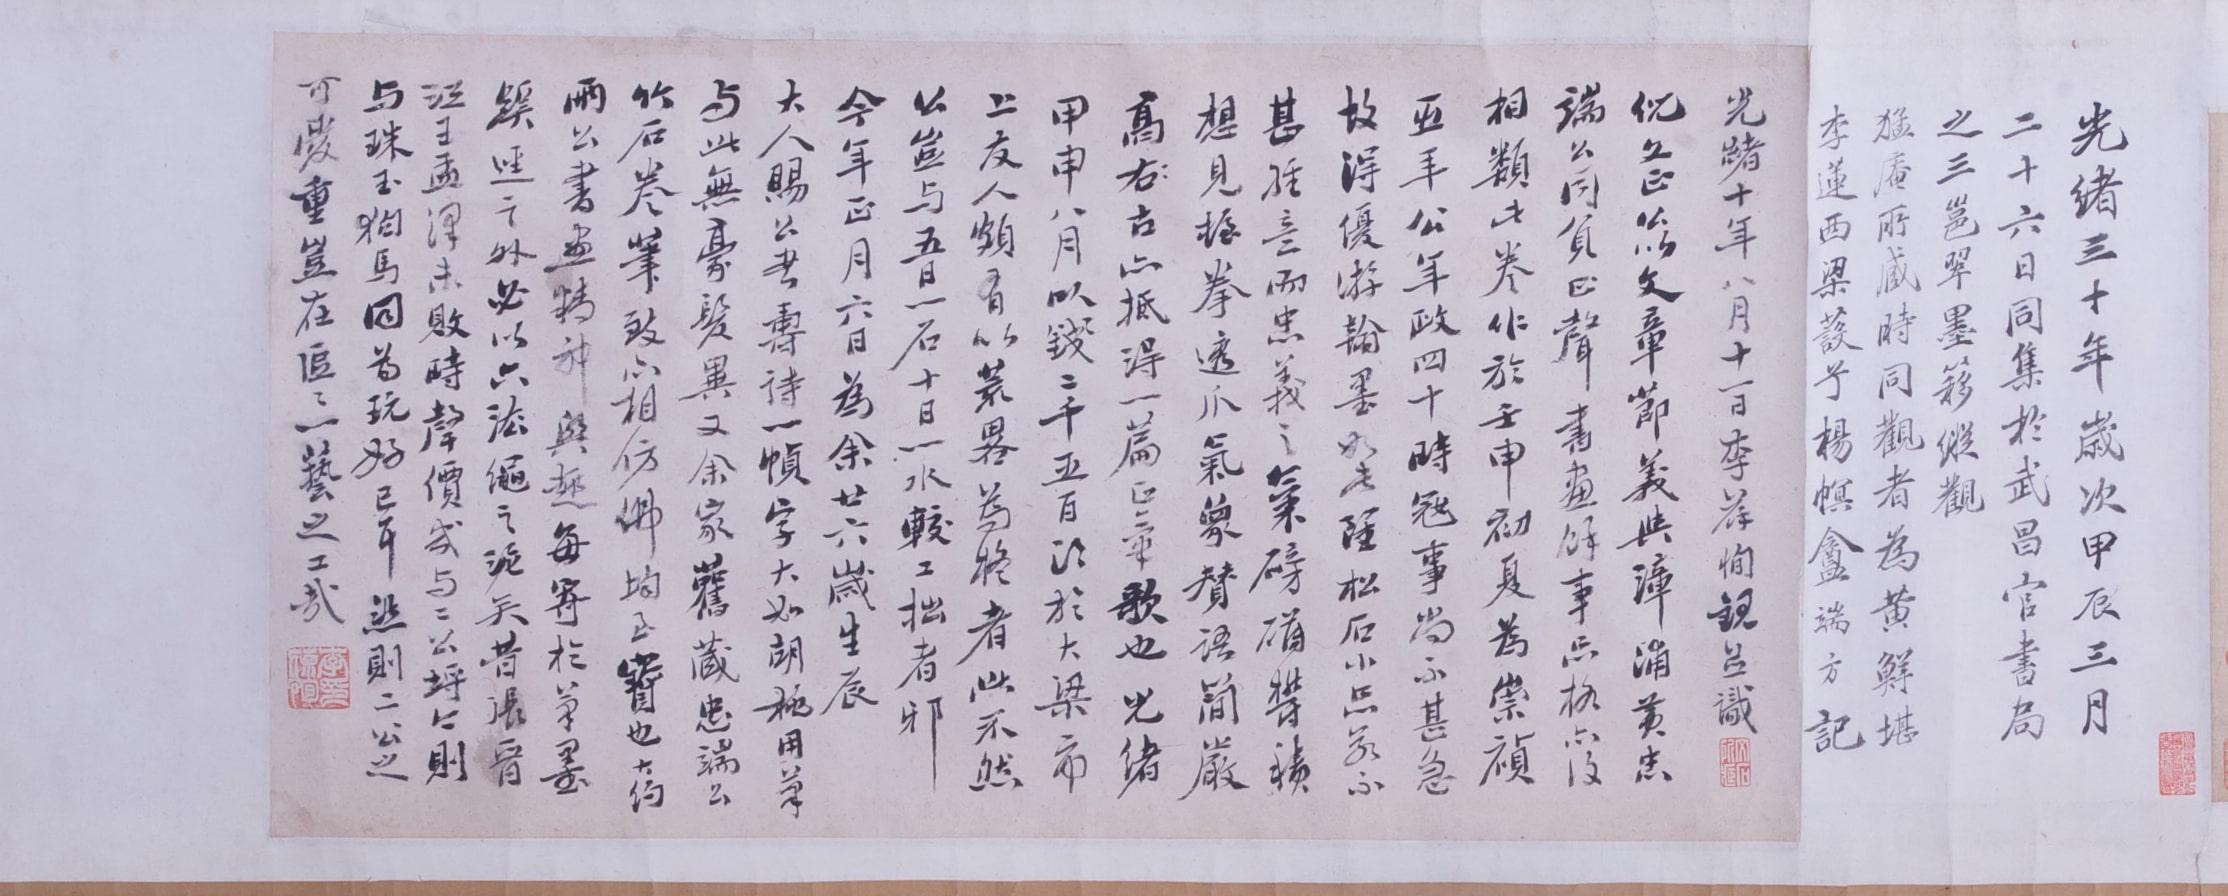 光緒三十年歲次甲辰三月
二十六日同集於武昌官書局
之三邕翠墨簃縱觀
猛庵所藏時同觀者為黃鮮堪
李蓮西梁葂予楊幎盦端方記
光緒十年八月十一日李葆恂觀並識
倪文正公以文章節義與漳浦黃忠
端公同負正聲書畫餘事亦格亦復
相類此卷作於壬申初夏為崇禎
五年公年政四十時寇事尚不甚急
故得優游翰墨如此隨松石小品若不
甚經意而忠義之氣磅礴鬱積
想見握拳透爪氣象贊語簡嚴
高古亦抵得一篇正氣歌也光緒
甲申八月以錢二千五百得於大梁市
上友人頗有以荒畧為嫌者此不然
公豈与五日一石十日一水較工拙者邪
今年正月六日為余廿六歲生辰
大人賜公書壽詩一幀字大如胡桃用筆
与此無豪髮異又余家舊藏忠端公
竹石卷筆致亦相仿佛均至寶也大約
兩公書畫精神興趣每寄於筆墨
蹊逕之外必以六法繩之泥矣昔張晉
江王孟津未敗時聲價或与二公埒今則
与珠玉狗馬同為玩好已耳然則二公之
可愛重豈在區區一藝之工哉